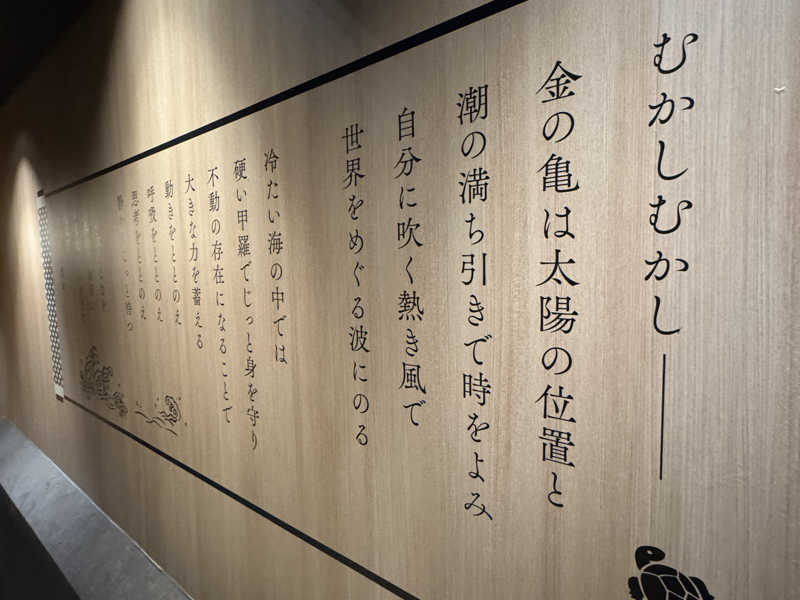 むかしむかし――
金の亀は太陽の位置と
潮の満ち引きで時をよみ、
自分に吹く熱き風で
世界をめぐる波にのる
冷たい海の中では
硬い甲羅でじっと身を守り
不動の存在になることで
大きな力を蓄える
動きをととのえ
呼吸をととのえ
思考をととのえ